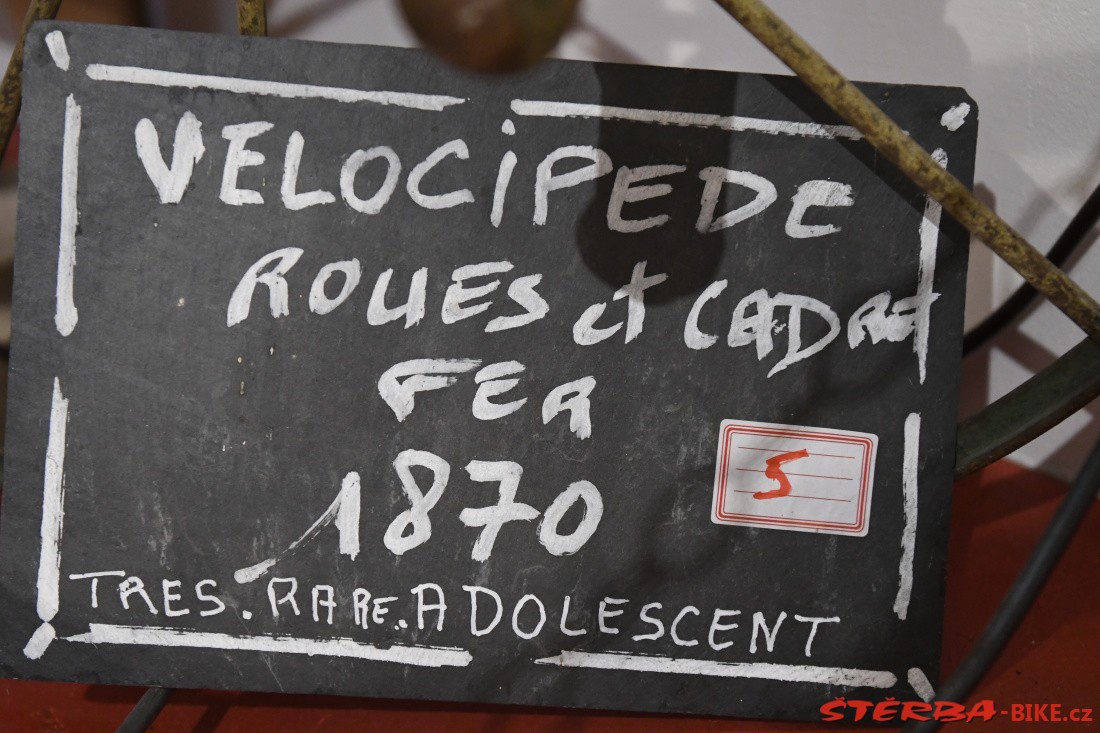 VELOCiPEDE
ROUES et CADRE
FER
1870
5
TRES. RARE. ADOLESCENT
ŠTĚRBA-BIKE.cz